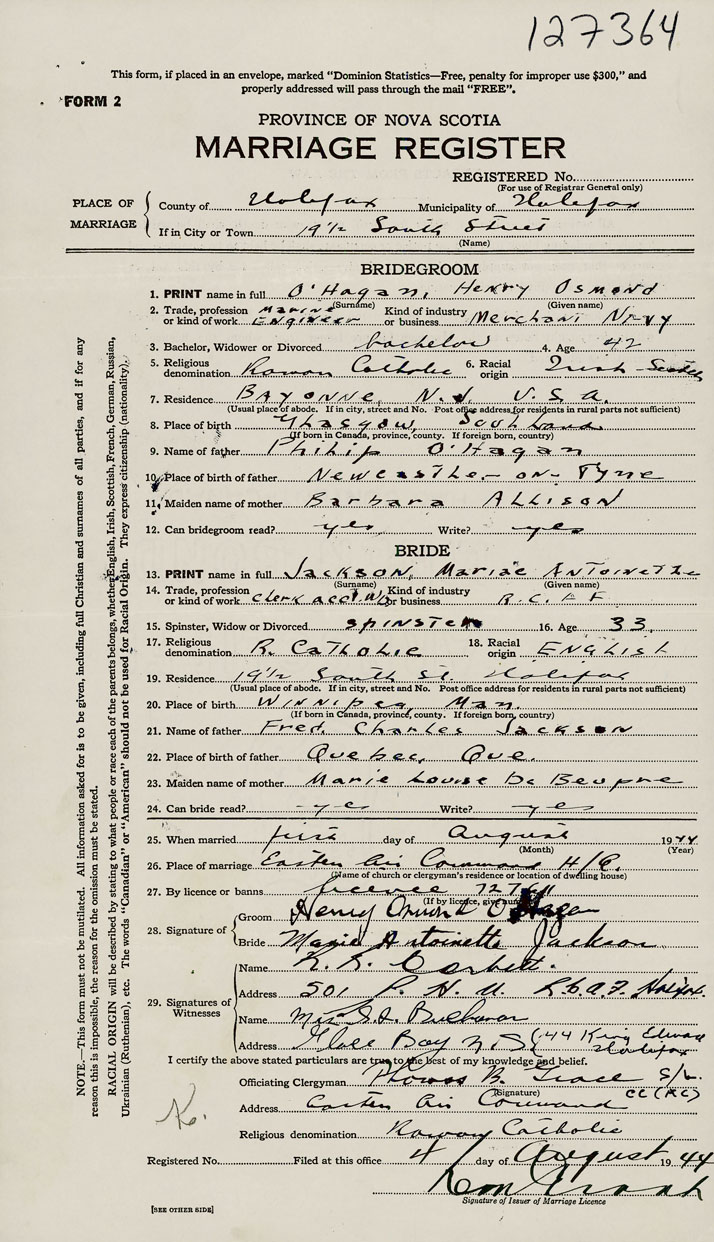 127364
This form, if placed in an envelope, marked "Dominion Statistics—Free, penalty for improper use $300," and
properly addressed will pass through the mail "FREE".
FORM 2
PROVINCE OF NOVA SCOTIA
MARRIAGE REGISTER
REGISTERED No.
(For use of Registrar General only)
PLACE OF MARRIAGE
County of Halifax Municipality of Halifax
If in City or Town 19½ South Street
(Name)
BRIDEGROOM
1. PRINT name in full O'Hagan, Henry Osmond
(Surname) (Given name)
2. Trade, profession or kind of work Marine Engineer Kind of industry or business Merchant Navy
3. Bachelor, Widower or Divorced bachelor 4. Age 42
5. Religious denomination Roman Catholic 6. Racial origin Irish-Scotch
7. Residence Bayonne, N.J. U.S.A.
(Usual place of abode. If in city, street and No. Post office address for residents in rural parts not sufficient)
8. Place of birth Glasgow, Scotland
(If born in Canada, province, county. If foreign born, country)
9. Name of father Philip O'Hagan
10. Place of birth of father Newcastle-on-Tyne
11. Maiden name of mother Barbara Allison
12. Can bridegroom read? yes Write? yes
BRIDE
13. PRINT name in full Jackson, Mariae Antoinette
(Surname) (Given name)
14. Trade, profession or kind of work Clerk Kind of industry or business R.C.A.F
15. Spinster, Widow or Divorced Spinster 16. Age 33
17. Religious denomination R. Catholic 18. Racial origin English
19. Residence 19½ South St. Halifax
(Usual place of abode. If in city, street and No. Post office address for residents in rural parts not sufficient)
20. Place of birth Winnipeg, Man.
(If born in Canada, province, county. If foreign born, country)
21. Name of father Fred. Charles Jackson
22. Place of birth of father Quebec, Que.
23. Maiden name of mother Marie Louise De Beupre
24. Can bride read? yes Write? yes
25. When married first day of August 1944
(Month) (Year)
26. Place of marriage Eastern Air Command H/Q.
(Name of church or clergyman's residence or location of dwelling house)
27. By licence or banns licence
(If by licence, give number)
28. Signature of
Groom Henry O'Hagan
Bride Marie Antoinette Jackson
29. Signatures of Witnesses
Name Corbett.
Address 501 R.C.A.F. Halifax.
Name Buchanan
Address Glace Bay N.S. (44 King Edward Halifax
I certify the above stated particulars are true to the best of my knowledge and belief.
Officiating Clergyman Thomas B. Grace S/L
(Signature) CC (RC)
Address Eastern Air Command
Religious denomination Roman Catholic
Registered No. Filed at this office 4 day of August 1944
Signature of Issuer of Marriage Licence
[SEE OTHER SIDE]
NOTE.—This form must not be mutilated. All information asked for is to be given, including full Christian and surnames of all parties, and if for any
reason this is impossible, the reason for the omission must be stated.
RACIAL ORIGIN will be described by stating to what people or race each of the parents belongs, whether English, Irish, Scottish, French, German, Russian,
Ukrainian (Ruthenian), etc. The words "Canadian" or "American" should not be used for Racial Origin. They express citizenship (nationality).